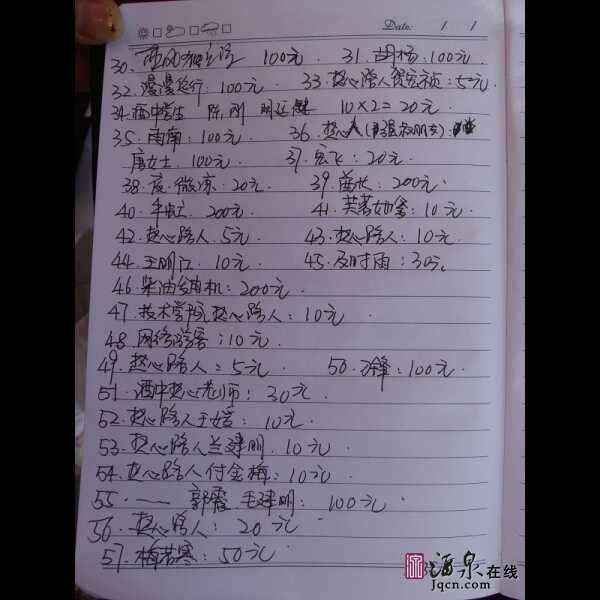 Date: / /
30. 100元. 31. 胡杨: 100元.
32. 漫漫长行. 100元. 33. 热心路人贺宏祯: 5元.
34. 酒中学生 陈刚 10×2=20元.
35. 雨南: 100元. 36. 热心人
唐女士. 100元. 37. 宏飞: 20元.
38. 夜微凉. 20元. 39. 200元.
40. 200元. 41. 芙蓉如舍: 10元.
42. 热心路人. 5元. 43. 热心路人: 10元.
44. 王明江. 10元. 45. 及时雨: 30元.
46. 柴油发电机: 200元.
47. 技术学院热心路人: 10元.
48. 网络游客: 10元.
49. 热心路人: 5元. 50. 冷锋: 100元.
51. 酒中热心老师: 30元.
52. 热心路人王婷: 10元.
53. 热心路人兰建明. 10元.
54. 热心路人付金梅: 10元.
55. —— 郭霞. 毛建明: 100元.
56. 热心路人: 20元.
57. 梅若寒: 50元.
酒泉在线
Jqcn.com